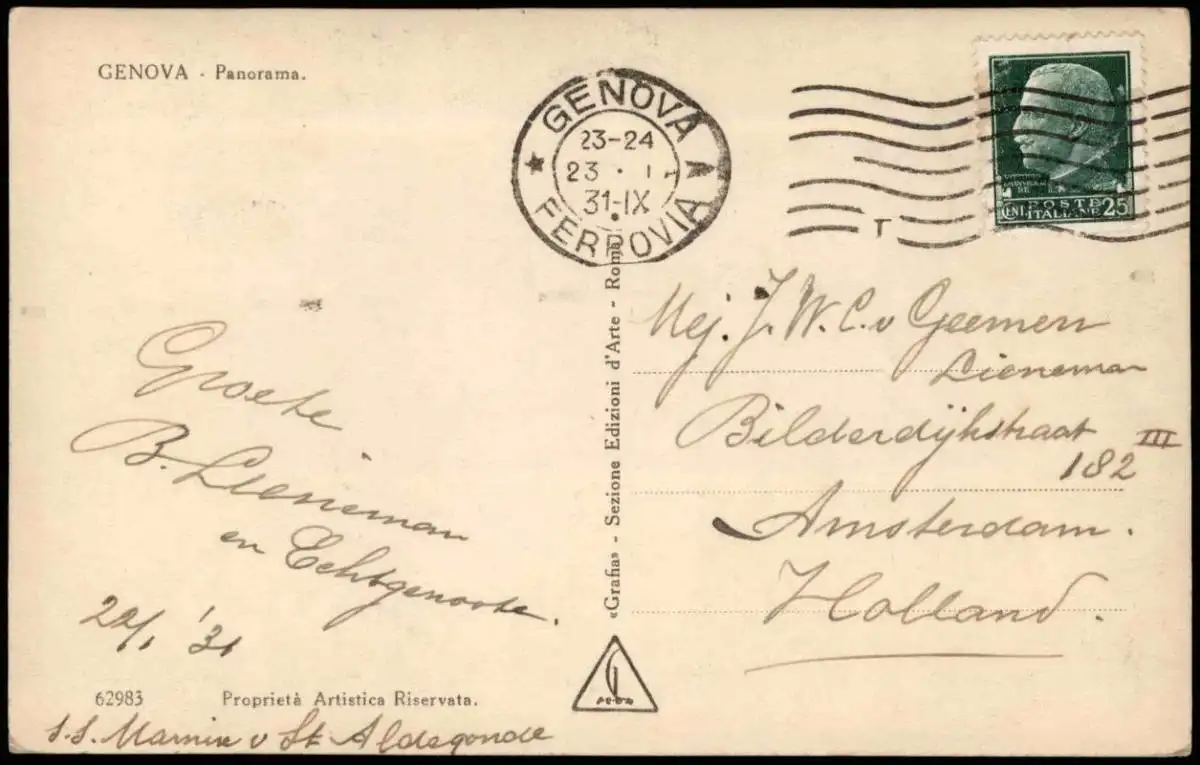 GENOVA - Panorama.
GENOVA
23-24
23 · I
31-IX
FERROVIA
T
POSTE
CENT. ITALIANE 25
Mej. J. W. C. v Geemen
Lieneman
Bilderdijkstraat III
182
Amsterdam.
Holland.
Groete
B. Lieneman
en Echtgenoote.
22/1 '31
«Grafia» - Sezione Edizioni d'Arte - Roma
62983 Proprietà Artistica Riservata.
S.S. Marnix v St Aldegonde